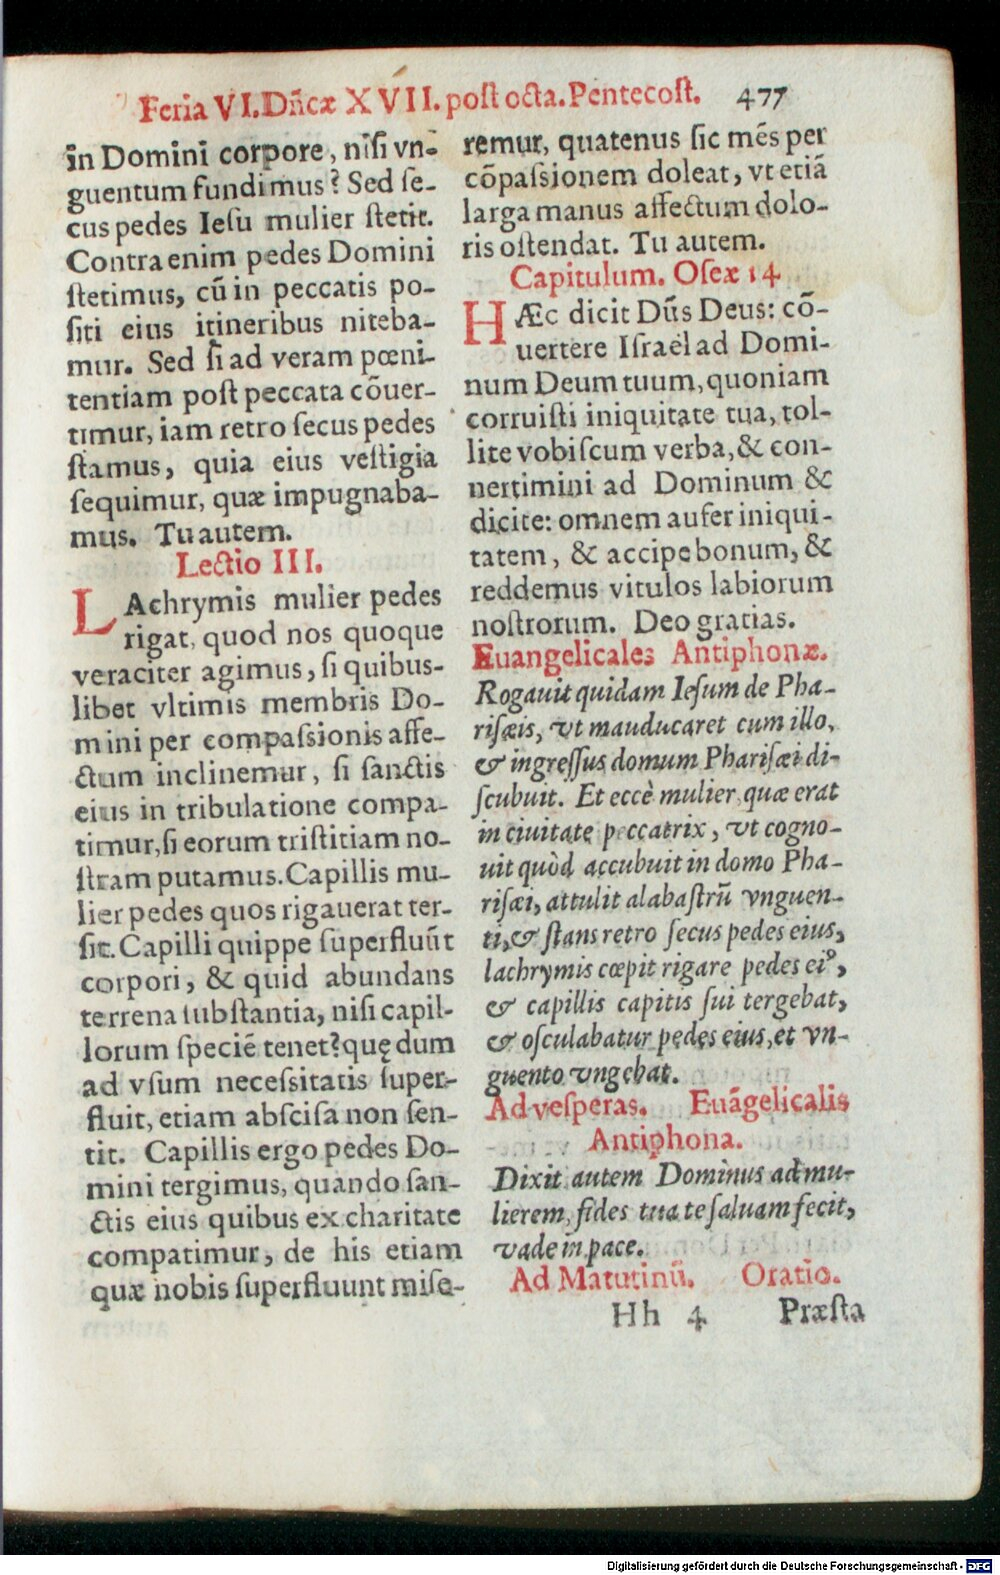 Feria VI. Dñcæ XVII. post octa. Pentecost. 477
in Domini corpore, nisi vn-
guentum fundimus? Sed se-
cus pedes Iesu mulier stetit.
Contra enim pedes Domini
stetimus, cũ in peccatis po-
siti eius itineribus niteba-
mur. Sed si ad veram pœni-
tentiam post peccata cõuer-
timur, iam retro secus pedes
stamus, quia eius vestigia
sequimur, quæ impugnaba-
mus. Tu autem.
Lectio III.
LAchrymis mulier pedes
rigat, quod nos quoque
veraciter agimus, si quibus-
libet vltimis membris Do-
mini per compassionis affe-
ctum inclinemur, si sanctis
eius in tribulatione compa-
timur, si eorum tristitiam no-
stram putamus. Capillis mu-
lier pedes quos rigauerat ter-
sit. Capilli quippe superfluũt
corpori, & quid abundans
terrena substantia, nisi capil-
lorum speciẽ tenet? quę dum
ad vsum necessitatis super-
fluit, etiam abscisa non sen-
tit. Capillis ergo pedes Do-
mini tergimus, quando san-
ctis eius quibus ex charitate
compatimur, de his etiam
quæ nobis superfluunt mise-
remur, quatenus sic mẽs per
cõpassionem doleat, vt etiã
larga manus affectum dolo-
ris ostendat. Tu autem.
Capitulum. Oseæ 14
HÆc dicit Dñs Deus: cõ-
uertere Israël ad Domi-
num Deum tuum, quoniam
corruisti iniquitate tua, tol-
lite vobiscum verba, & con-
nertimini ad Dominum &
dicite: omnem aufer iniqui-
tatem, & accipe bonum, &
reddemus vitulos labiorum
nostrorum. Deo gratias.
Euangelicales Antiphonæ.
Rogauit quidam Iesum de Pha-
risæis, vt mauducaret cum illo,
& ingressus domum Pharisæi di-
scubuit. Et eccè mulier quæ erat
in ciuitate peccatrix, vt cogno-
uit quòd accubuit in domo Pha-
risæi, attulit alabastrũ vnguen-
ti, & stans retro secus pedes eius,
lachrymis cœpit rigare pedes eiꝰ,
& capillis capitis sui tergebat,
& osculabatur pedes eius, et vn-
guento vngebat.
Ad vesperas. Euãgelicalis
Antiphona.
Dixit autem Dominus ad mu-
lierem, fides tua te saluam fecit,
vade in pace.
Ad Matutinũ. Oratio.
Hh 4 Præsta
Digitalisierung gefördert durch die Deutsche Forschungsgemeinschaft - DFG